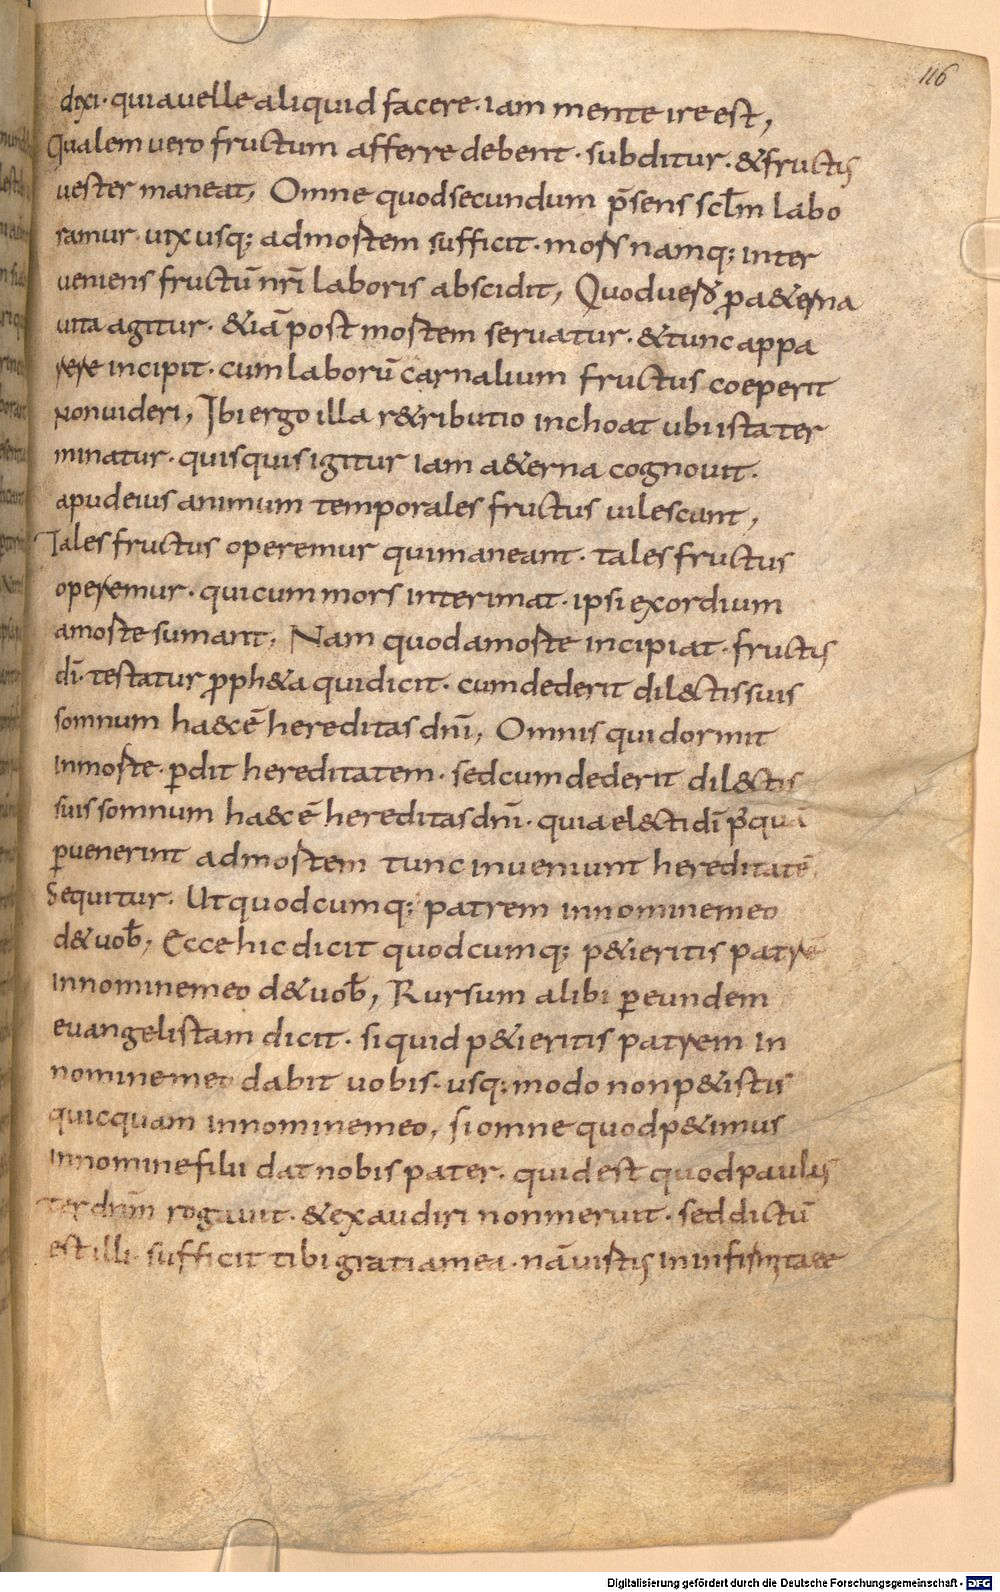 116
dixi· quia uelle aliquid facere· iam mente ire est,
Qualem uero fructum afferre debent· subditur· & fructus
uester maneat, Omne quod secundum p̄sens scl̄m labo
ramur· uix usq; ad mortem sufficit· mors namq; inter
ueniens fructū nr̄i laboris abscidit, Quod uero p̱ a&erna
uita agitur· &iā post mortem seruatur· & tunc appa
rere incipit· cum laborū carnalium fructus coeperit
non uideri, Ibi ergo illa r&ributio inchoat ubi ista ter
minatur· quisquis igitur iam a&erna cognouit·
apud eius animum temporales fructus uilescunt,
Tales fructus operemur qui maneant· tales fructus
operemur· qui cum mors interimat· ipsi exordium
a morte sumant, Nam quod a morte incipiat· fructus
dī· testatur p̱ph&a qui dicit· cum dederit dil&tis suis
somnum haec ē hereditas dnī, Omnis qui dormit
in morte· p̱dit hereditatem· sed cum dederit dil&tis
suis somnum haec ē hereditas dnī· quia el&ti dī p̱quā
p̱uenerint ad mortem tunc inueniunt hereditatē
Sequitur· Ut quodcumq; patrem in nomine meo
d& uob̄, Ecce hic dicit quodcumq; p&ieritis patrē
in nomine meo d& uob̄, Rursum alibi p̱ eundem
euangelistam dicit· si quid p&ieritis patrem in
nomine meo dabit uobis· usq; modo non p&istis
quicquam in nomine meo, si omne quod p&imus
in nomine filii dat nobis pater· quid est quod paulus
ter dnm̄ rogauit· & exaudiri non meruit· sed dictū
est illi· sufficit tibi gratia mea· nā uirtus in infirmitate
Digitalisierung gefördert durch die Deutsche Forschungsgemeinschaft - DFG